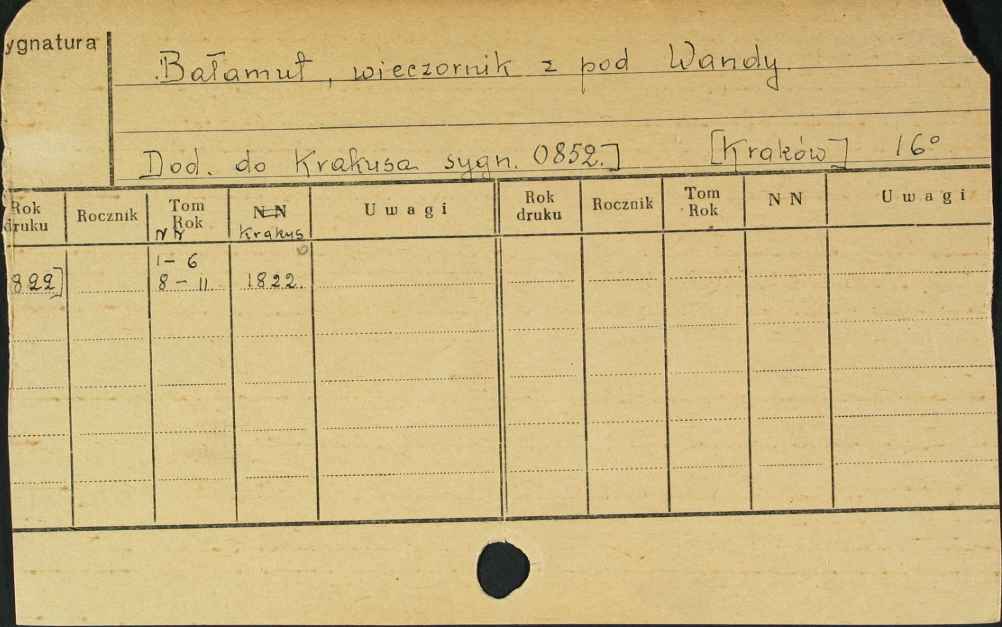 ygnatura
Bałamut, wieczornik z pod Wandy.
Dod. do Krakusa sygn. 0852.] [Kraków] 16°
Rok druku Rocznik Tom Rok NN Uwagi Rok druku Rocznik Tom Rok NN Uwagi
NN Krakus
1-6
822] 8-11 1822.